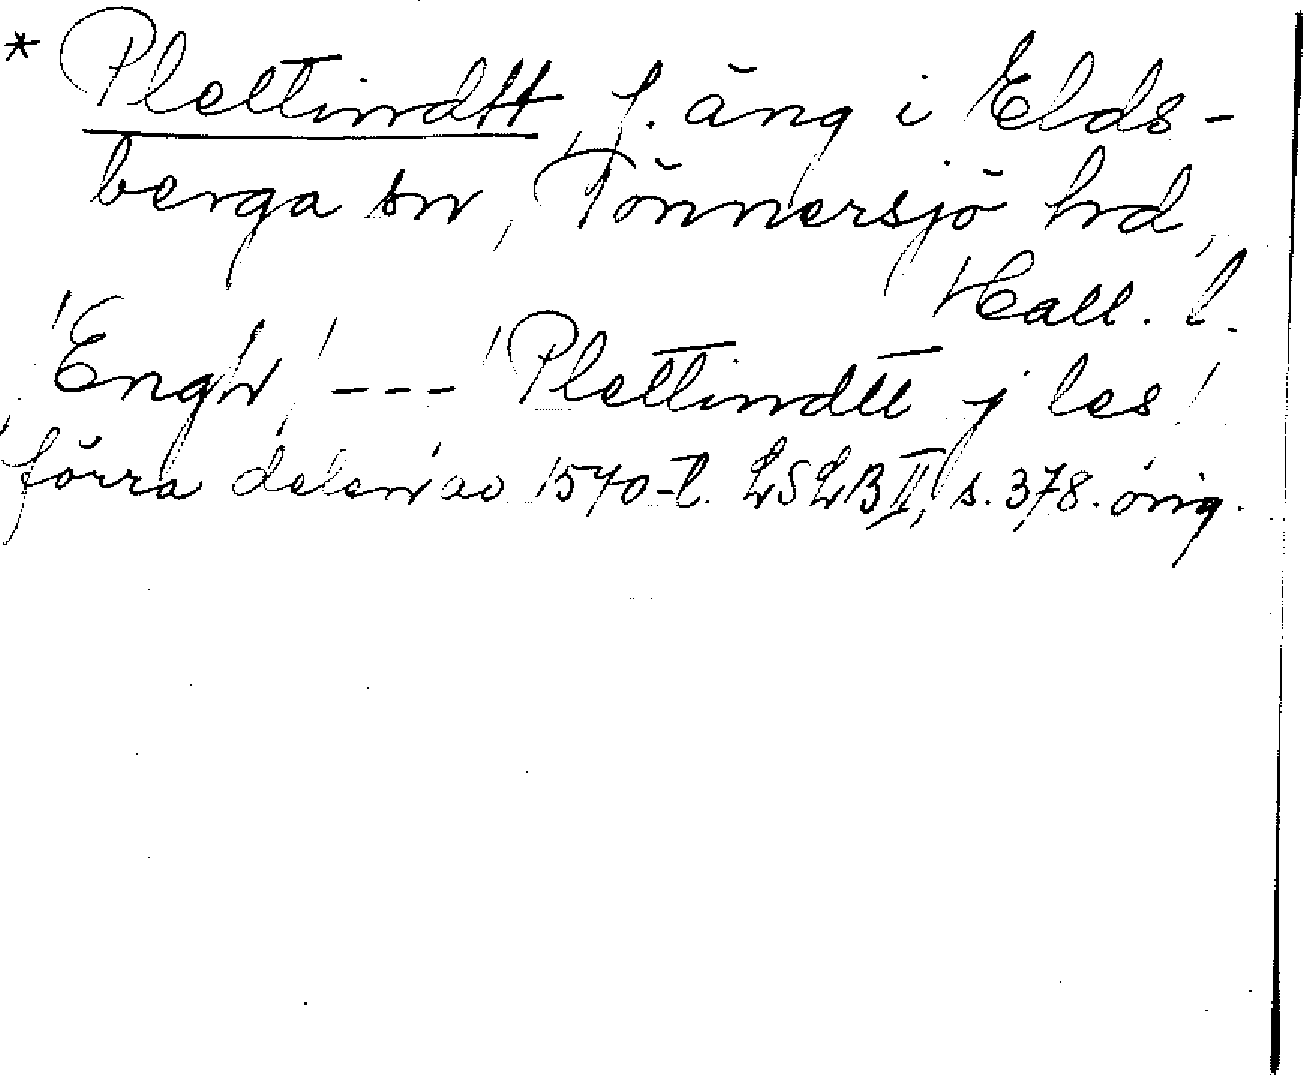 * Plettindtt, f. äng i Elds-
berga sn, Tönnersjö hd,
Hall. l.
'Engh' --- 'Plettindtt j les'
förra delen av 1540-t. LSLB II, s. 378. orig.